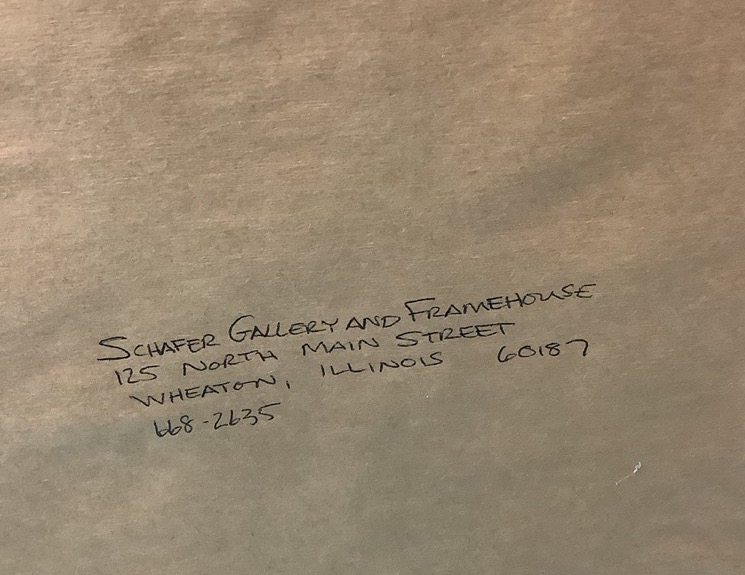 SCHAFER GALLERY AND FRAMEHOUSE
125 NORTH MAIN STREET
WHEATON, ILLINOIS 60187
668-2635